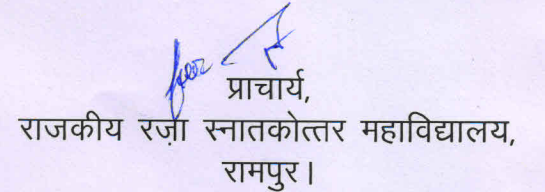 प्राचार्य,
राजकीय रज़ा स्नातकोत्तर महाविद्यालय,
रामपुर।